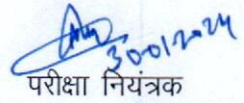 30/01/2024
परीक्षा नियंत्रक